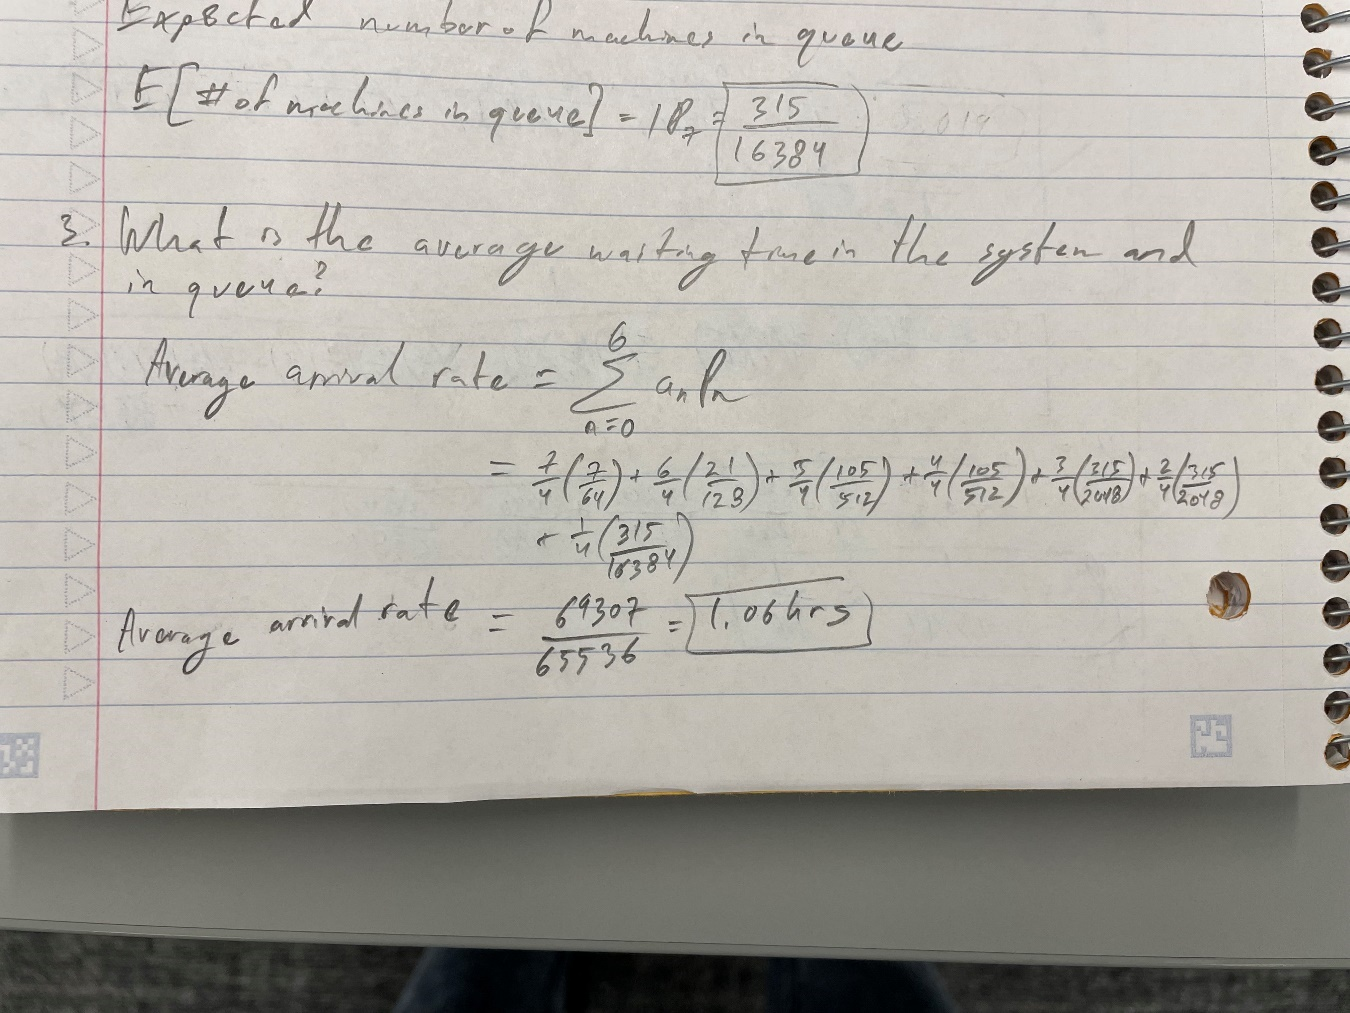 Expected number of machines in queue
E[# of machines in queue] = 1P₇ = 315/16384
3. What is the average waiting time in the system and
in queue?
Average arrival rate = ∑_{n=0}^{6} aₙPₙ
= 7/4(7/64) + 6/4(21/128) + 5/4(105/512) + 4/4(105/512) + 3/4(315/2048) + 2/4(315/2048)
+ 1/4(315/16384)
Average arrival rate = 69307/65536 = 1.06hrs